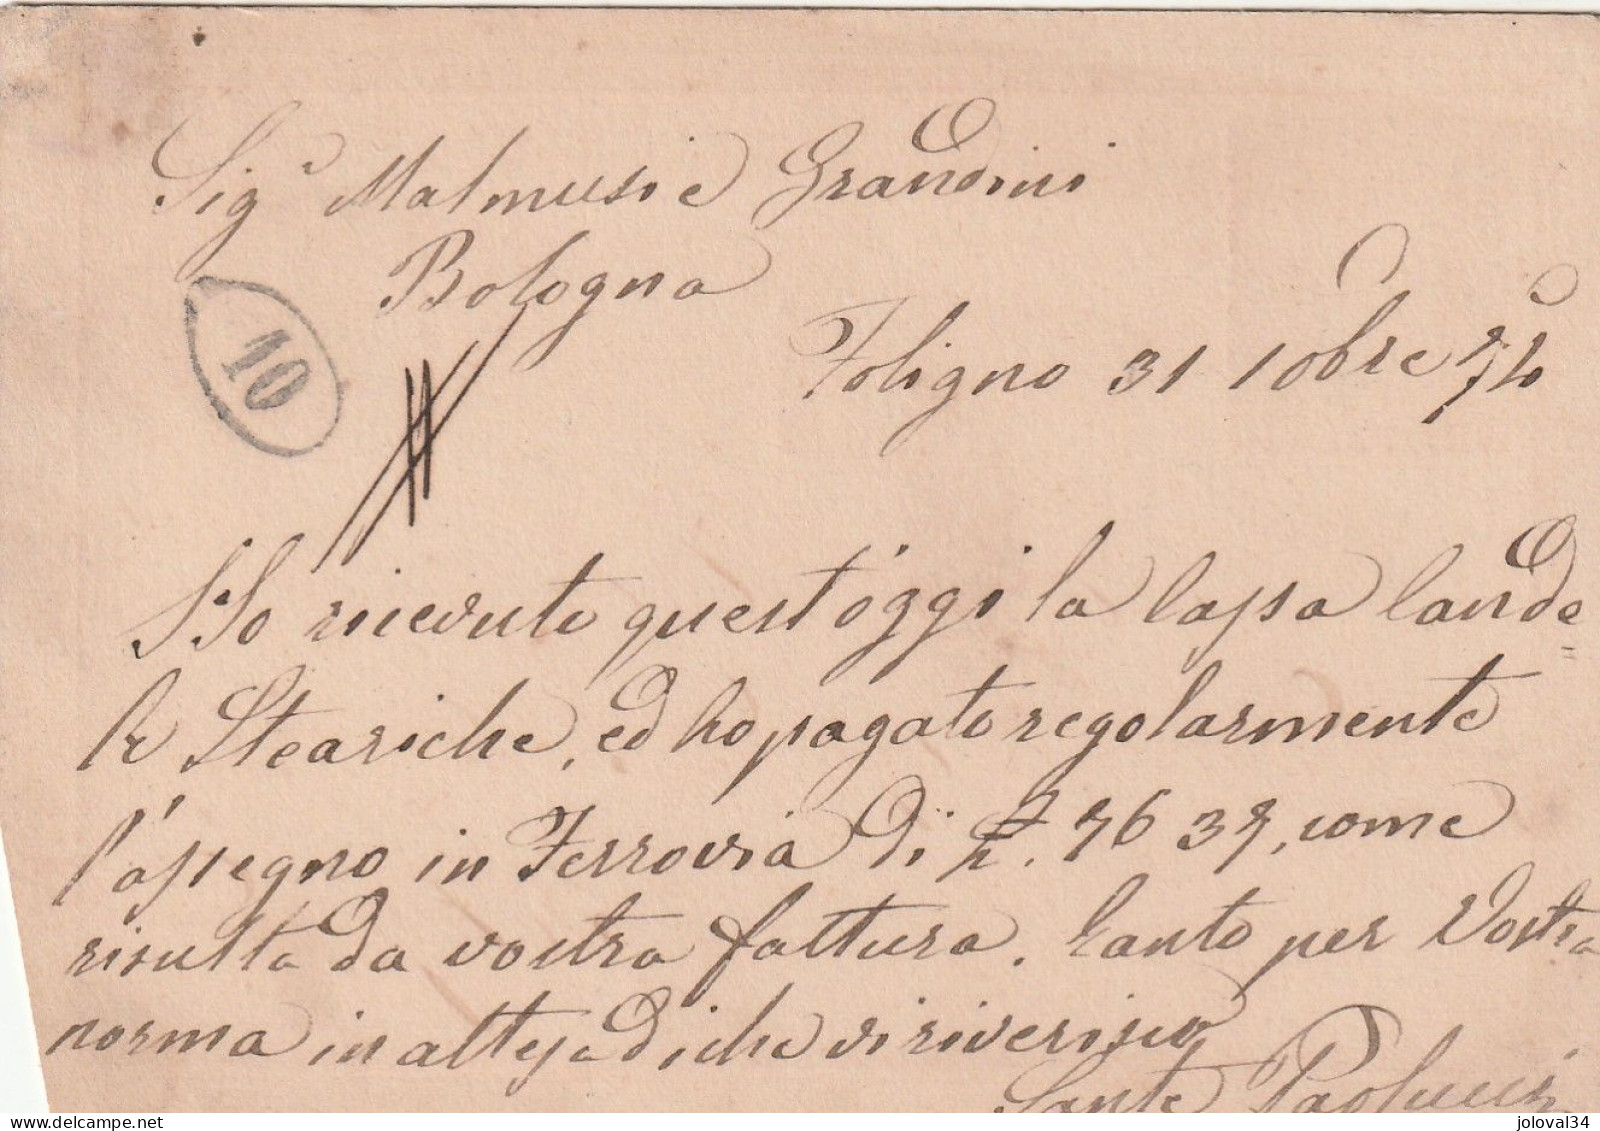 Sig.i Malmusi e Grandini
Bologna
10
Foligno 31 10bre 74
Ho ricevuto quest'oggi la Cassa Cande=
le Steariche, ed ho pagato regolarmente
l'assegno in Ferrovia di £. 76 37, come
risulta da vostra fattura. Tanto per Vostra
norma in attesa di che vi riverisco
Sante Paolucci
joloval34
delcampe.net